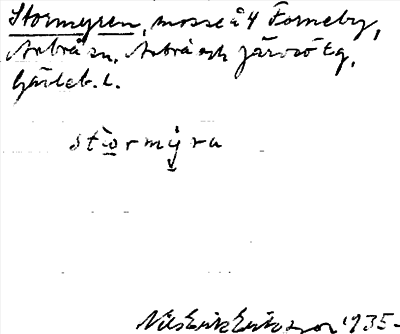 Stormyren, mosse å 4 Forneby,
Arbrå sn, Arbrå och Järvsö tg,
Gävleb. l.
stormyra
Nils Erik Eriksson 1935